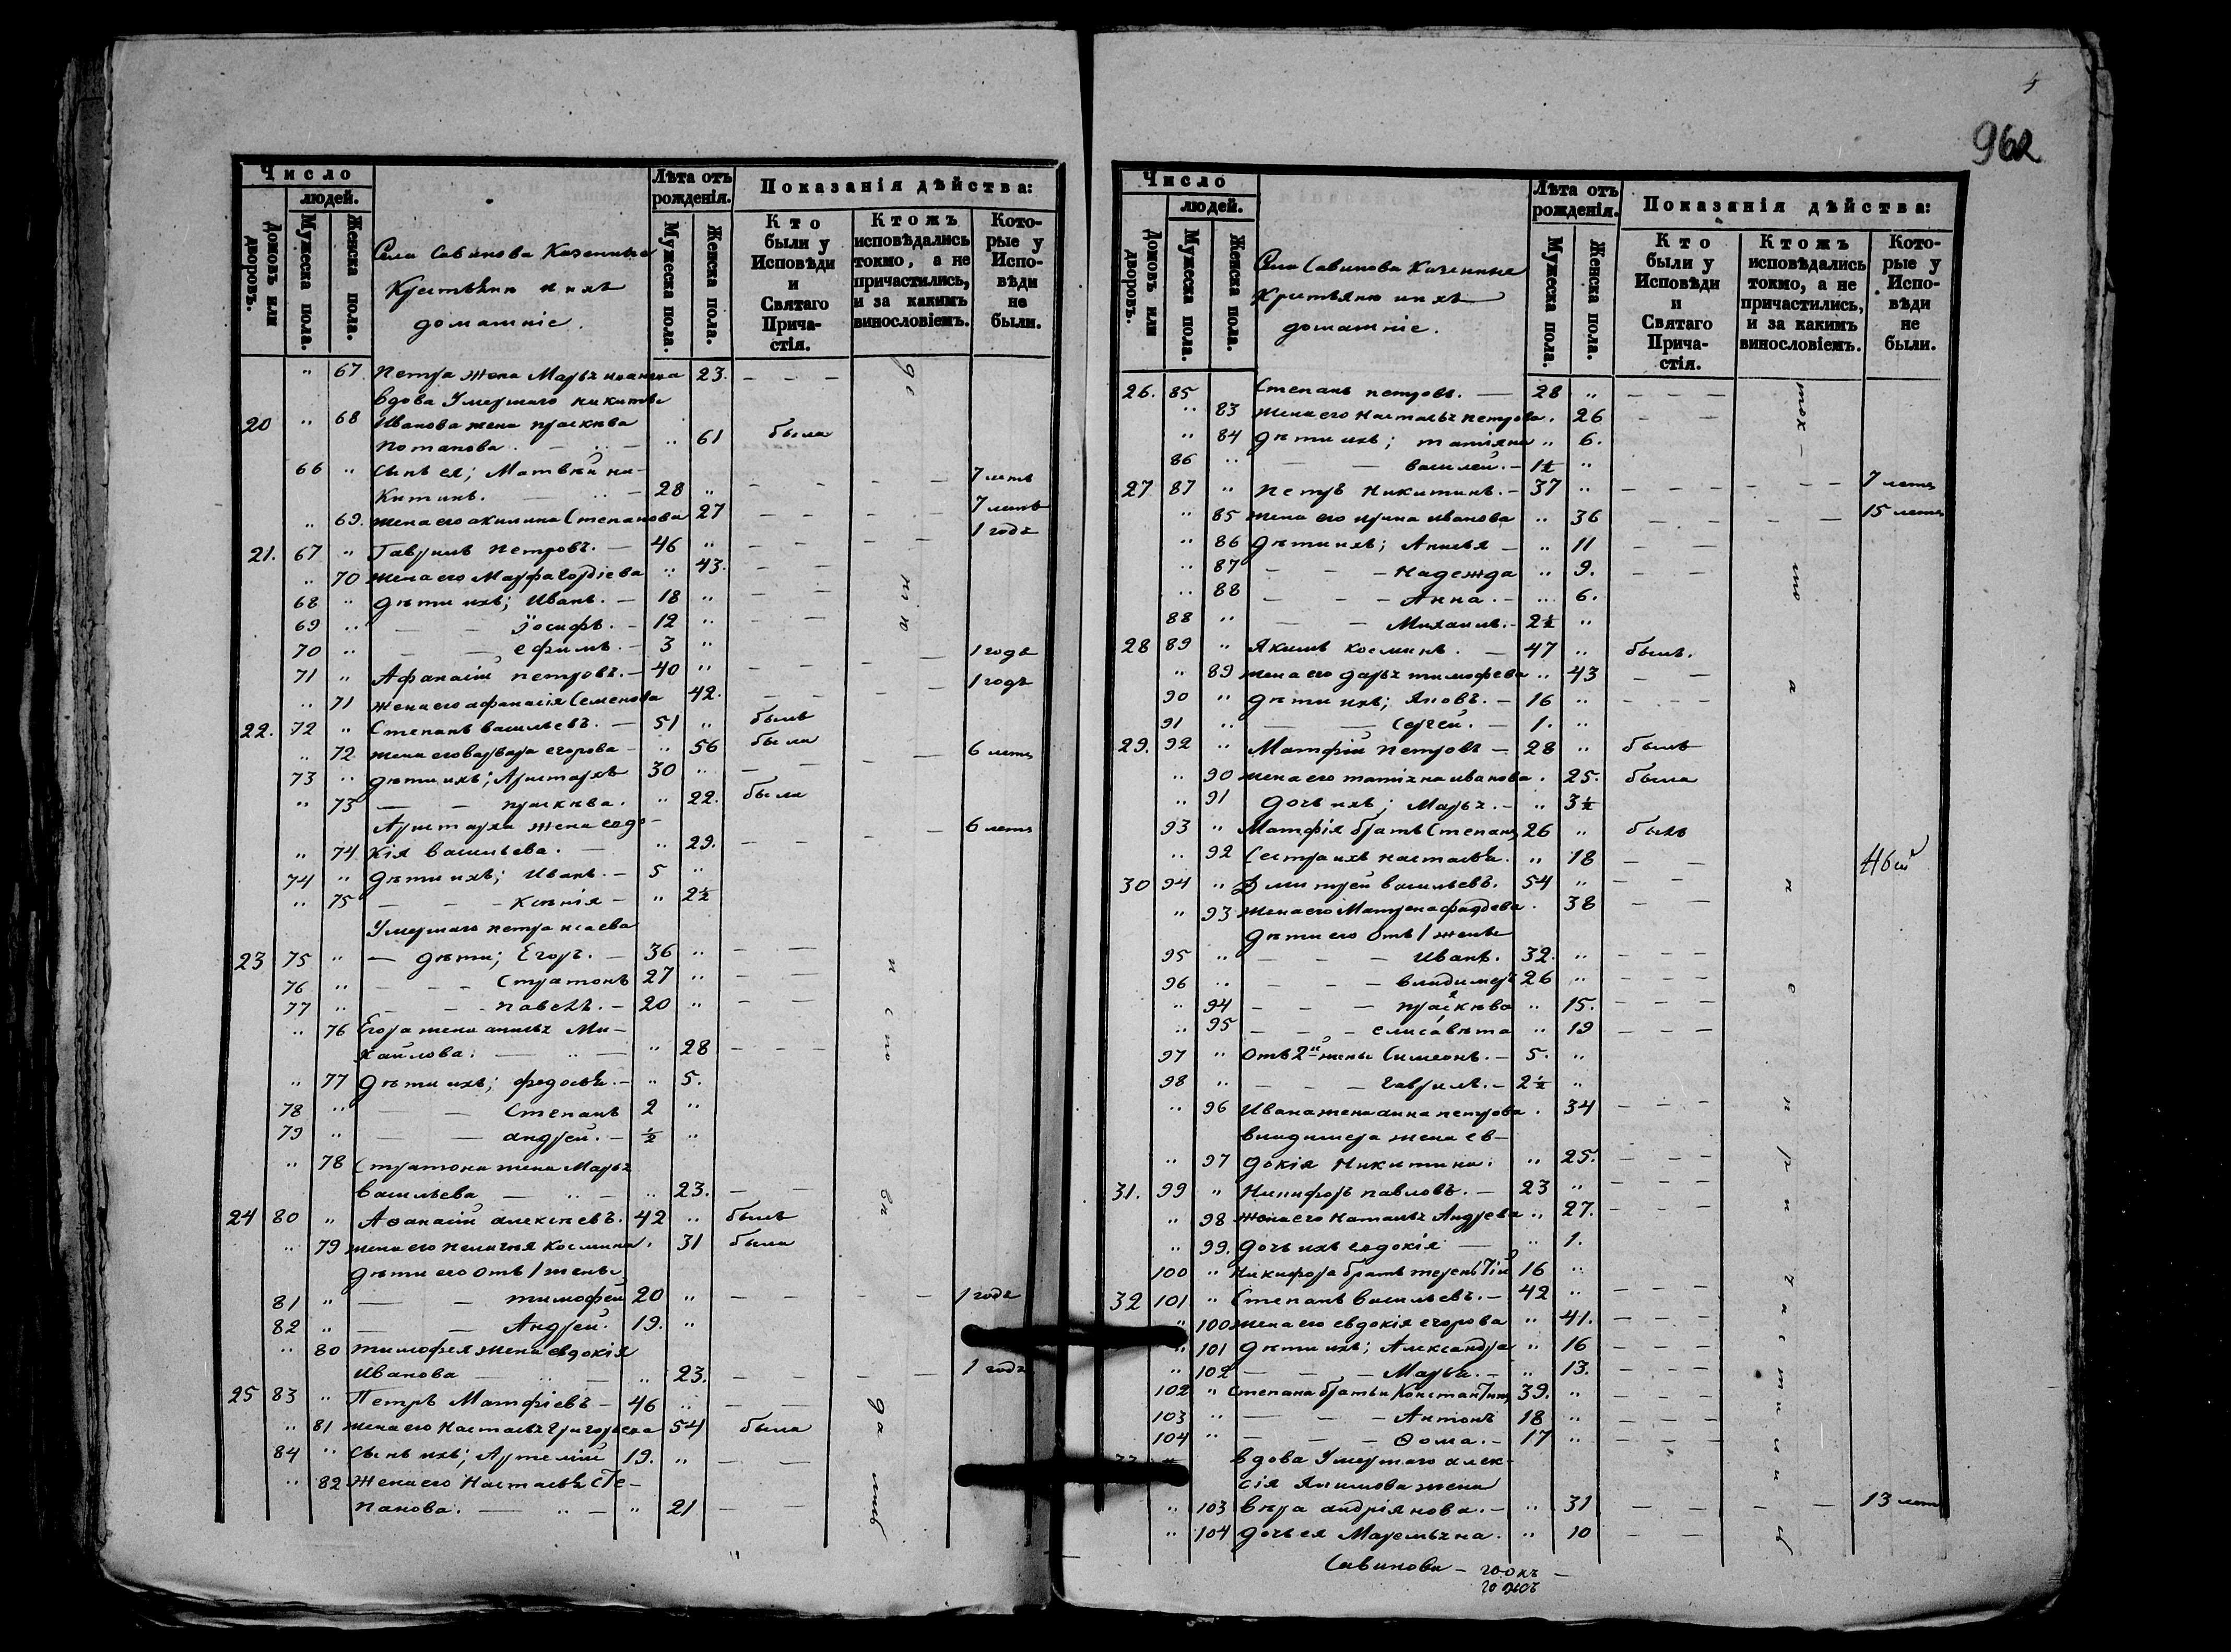 Число
людей.
Домовъ или дворовъ.
Мужеска пола.
Женска пола.
Села Савинова Казенные
Крестьяне и ихъ
домашніе.
Лѣта отъ рожденія.
Мужеска пола.
Женска пола.
Показанія дѣйства:
Кто были у Исповѣди и Святаго Причастія.
Ктожъ исповѣдались токмо, а не причастились, и за какимъ винословіемъ.
Которые у Исповѣди не были.
" 67 Петра жена Марья Иванова 23. – – –
вдова Умершаго Никиты
20 " 68 Иванова жена прасковa
Потапова. – " – " 61 была
66 " сынъ ея; Матвѣй Ни-
китинъ. – " – 28 " – – – – 7 летъ
" 69. жена его акилина Степанова 27 – – – – 7 летъ
21. 67 " Гаврилъ Петровъ. – 46 " – – – – 1 годъ
" 70 жена его Марфа Гордіева " 43. – –
68 " дѣти ихъ; Иванъ. – 18 " – –
69 " – – Іосифъ. – 12 " – –
70 " – – ефимъ. – 3 "
71 " Афанасій петровъ. – 40 " – – – – 1 годъ
" 71 жена его афанасія Семенова 42. – – – – 1 годъ
22. 72 " Степанъ васильевъ. – 51 " былъ
" 72 жена его варвара егорова – " 56 была
73 " дѣти ихъ; Аристархъ 30 " – – – – 6 летъ
" 73 – – праскева. " 22. была
Аристарха жена евдо-
" 74 кія васильева. – " 29. – – – – 6 летъ
74 " дѣти ихъ; Иванъ. – 5 "
" 75 – – – Ксенія – " 2½
Умершаго петра исаева
23 75 " – дѣти; Егоръ. – 36 " – –
76 " – – – Стратонъ 27 " – –
77 " – – – павелъ. – 20 " – –
" 76 Егора жена анисья Ми-
хайлова. – " – " 28 – – –
" 77 дѣти ихъ; федосья. – " 5.
78 " – – Степанъ 2 "
79 " – – андрей. – ½ "
" 78 Стратона жена Марья
васильева – " – " 23. – –
24 80 " Аѳанасій алексеевъ. 42 " былъ
" 79 жена его пелагея Космина. 31 была
дѣти его отъ 1 жены
81 " – – тимофей 20 " – – – – 1 годъ
82 " – – Андрей. 19. "
" 80 тимофея жена евдокія
Иванова – " – " 23. – – – – 1 годъ
25 83 " Петръ Матфіевъ – 46 " – –
" 81 жена его Настасья Григорьева 54 была
84 " сынъ ихъ; Артемій 19. " – –
" 82 Жена его Настасья Сте-
панова. – " – " 21 – –
962
Число
людей.
Домовъ или дворовъ.
Мужеска пола.
Женска пола.
Села Савинова Казенные
Крестьяне и ихъ
домашніе.
Лѣта отъ рожденія.
Мужеска пола.
Женска пола.
Показанія дѣйства:
Кто были у Исповѣди и Святаго Причастія.
Ктожъ исповѣдались токмо, а не причастились, и за какимъ винословіемъ.
Которые у Исповѣди не были.
26. 85 Степанъ петровъ. – 28 " – – –
" 83 жена его Настасья петрова. 26 – –
" 84 дѣти ихъ; татіяна " 6.
86 " – – василей. – 1½ "
27 87 " Петръ Никитинъ. – 37 " – – – – – – 7 летъ
" 85 жена его ирина иванова " 36 – – – – 15 летъ
" 86 дѣти ихъ; Анисья – " 11 – –
" 87 – – – Надежда " 9. – –
" 88 – – – Анна. – " 6.
88 " – – Михаилъ. – 2½ "
28 89 " Якимъ Косминъ. – 47 " былъ.
" 89 жена его дарья тимофева " 43 – –
90 " дѣти ихъ; Яковъ. – 16 " – – –
91 " – – Сергей. – 1. "
29. 92 " Матфій Петровъ – 28 " былъ
" 90 жена его татіяна иванова. 25. была
" 91 дочь ихъ; Марья. – " 3½
93 " Матфія братъ Степанъ 26 " былъ
" 92 Сестра ихъ настасья. " 18 – –
30 94 " Дмитрей васильевъ. 54 " – –
" 93 жена его Матрена фаддева. 38 – –
дѣти его отъ 1 жены
95 " – – – Иванъ. 32. " – – –
96 " – – – владимеръ 26 " – – –
" 94 – – – праскѣва " 15. – – –
" 95 – – – елисавѣта " 19 – – –
97 " отъ 2й жены Симеонъ. – 5. "
98 " – – – Гаврилъ. – 2½ "
" 96 Ивана жена анна петрова. 34 – – –
владимера жена ев-
" 97 докія Никитина. " 25. – – –
31. 99 " Никифоръ павловъ. – 23 " – – –
" 98 Жена его Наталья Андреева " 27. – – –
" 99. дочь ихъ евдокія – " 1.
100 " Никифора братъ терентій 16 "
32 101 " Степанъ васильевъ. – 42 " – –
" 100 жена его евдокія егорова " 41. – – –
" 101 дѣти ихъ; Александра " 16 – – –
" 102 – – – Марья. – " 13. – – –
102 " Степана братьи Константинъ 39. " – – –
103 " – – – Антонъ 18 " – – –
104 " – – – Ѳома. – 17 " – – –
вдова Умершаго алек-
сія Якимова жена
" 103 вѣра андріянова. – " 31 – – – – 13 летъ
" 104 дочь ея Маремьяна. " 10 – –
Савинова –